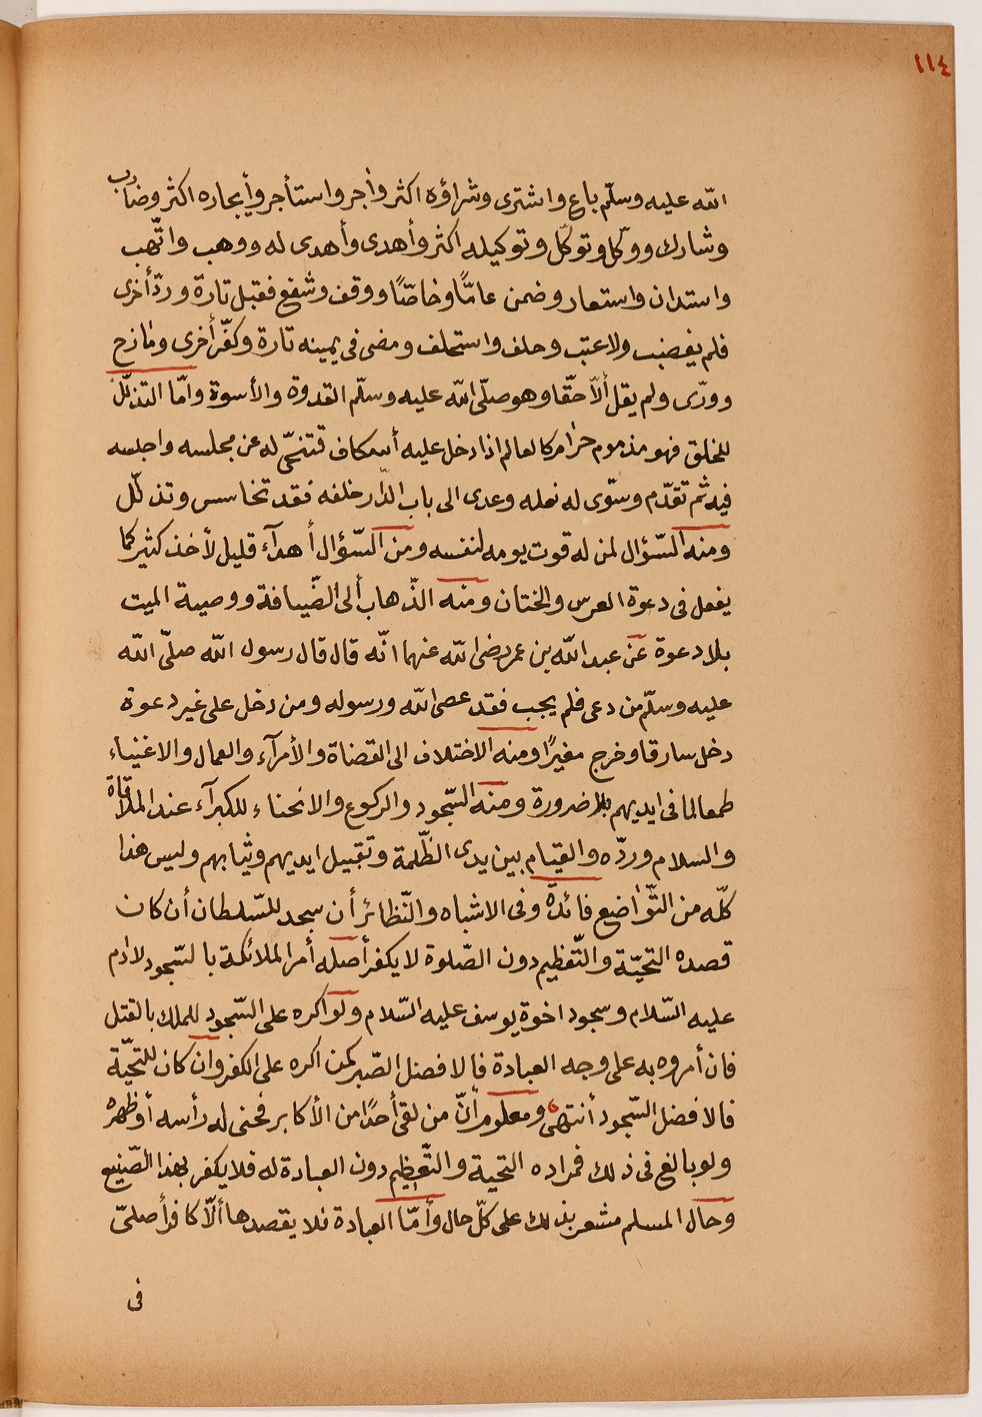 ١١٤
الله عليه وسلّم باع واشترى وشراؤه اكثر وأجر واستأجر وأيجاره اكثر وضارب
وشارك ووكّل وتوكّل وتوكيله اكثر وأهدى وأهدى له ووهب واتّهب
واستدان واستعار وضمن عامًّا وخاصًّا ووقف وشفع فقبل تارة وردّ أخرى
فلم يغضب ولا عتب وحلف واستحلف ومضى فى يمينه تارة وكفّر أخرى ومازح
وورّى ولم يقل ألّا حقّا وهو صلّى الله عليه وسلّم القدوة والأسوة وامّا التذلّل
للخلق فهو مذموم حرام كالعالم اذا دخل عليه أسكاف فتنحّى له عن مجلسه واجلسه
فيه ثم تقدّم وسوّى له نعله وعدى الى باب الدّار خلفه فقد تخاسس وتذلّل
ومنه السّؤال لمن له قوت يومه لنفسه ومن السّؤال أهدآء قليل لأخذ كثير كما
يفعل فى دعوة العرس والختان ومنه الذّهاب ألى الضّيافة ووصية الميت
بلا دعوة عن عبد الله بن عمر رضى الله عنهما انّه قال قال رسول الله صلّى الله
عليه وسلّم من دعى فلم يجب فقد عصى الله ورسوله ومن دخل على غير دعوة
دخل سارقا وخرج مغيرًا ومنه الاختلاف الى القضاة والأمرآء والعمال والاغنياء
طمعا لما فى ايديهم بلا ضرورة ومنه السّجود والركوع والانحناء للكبرآء عند الملاقاة
والسلام وردّه والقيام بين يدى الظّلمة وتقبيل ايديهم وثيابهم وليس هذا
كلّه من التّواضع فائدة وفى الاشباه والنّظائر أن سجد للسّلطان أن كان
قصده التحيّة والتّعظيم دون الصّلوة لا يكفر أصله أمر الملائكة بالسّجود لادم
عليه السّلام وسجود اخوة يوسف عليه السّلام ولو اكره على السّجود للملك بالقتل
فان أمروه به على وجه العبادة فالافضل الصّبر كمن اكره على الكفر وان كان للتحيّة
فالافضل السّجود أنتهى ومعلوم أنّ من لقى أحدًا من الأكابر فحنى له رأسه أو ظهره
ولو بالغ فى ذلك فمراده التحية والتّعظيم دون العبادة له فلا يكفر بهذا الصّنيع
وحال المسلم مشعر بذلك على كلّ حال وأمّا العبادة فلا يقصدها ألّا كافر أصلىّ
فى